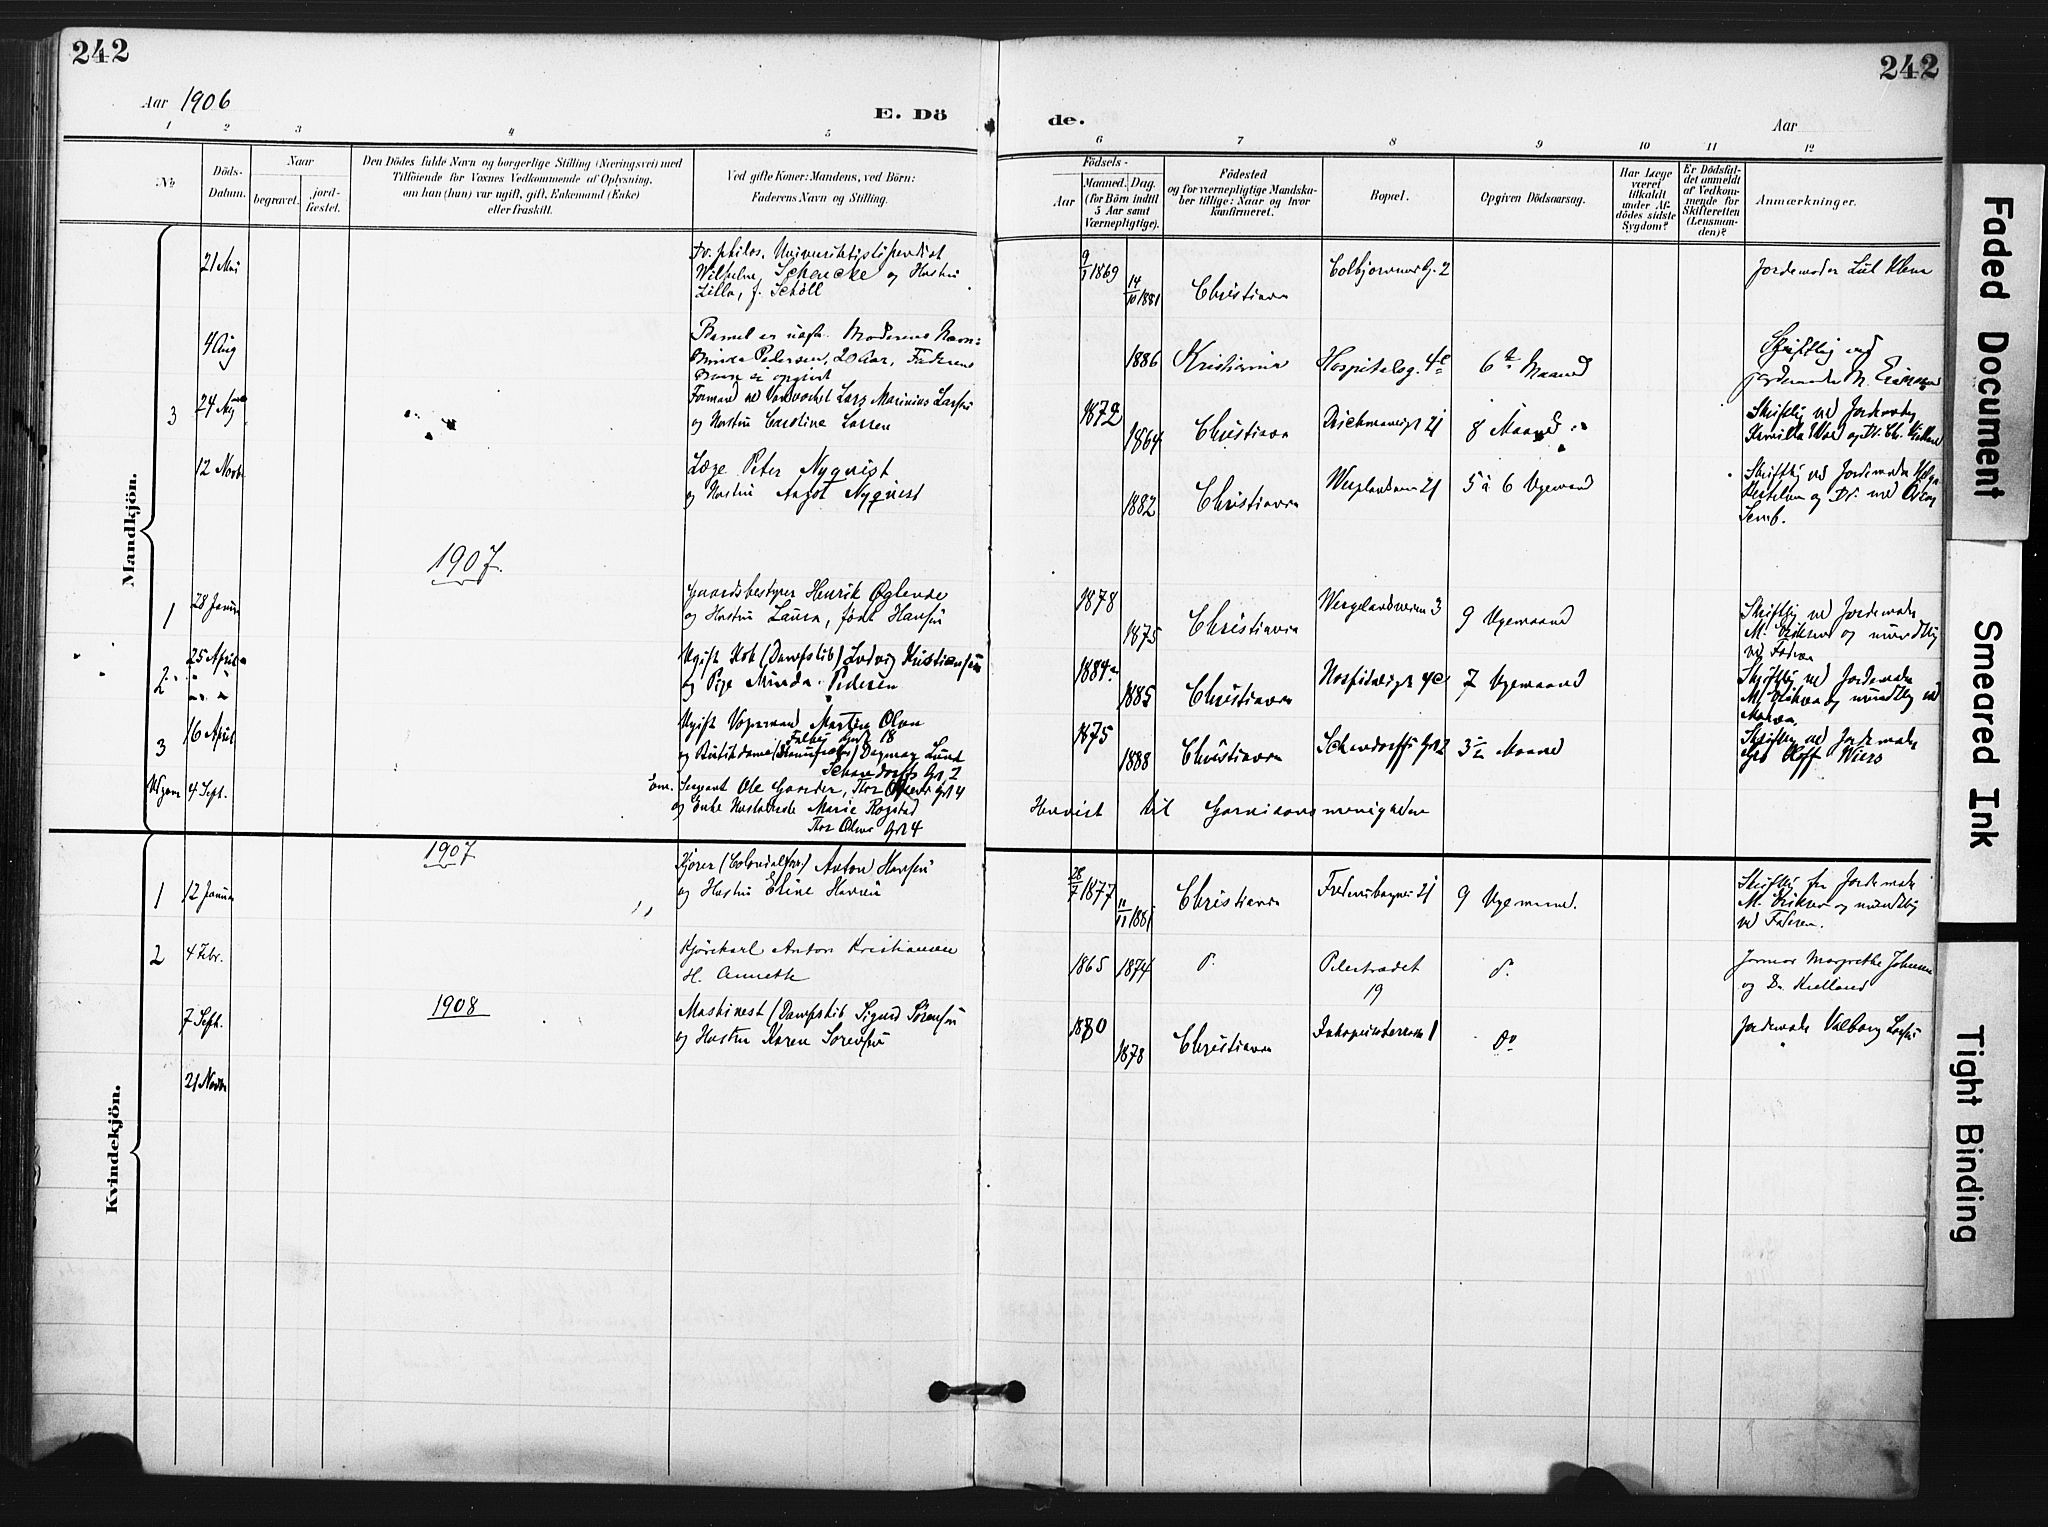 242
242
Aar 1906
E. Dö
de.
Aar
1 2 3 4 5 6 7 8 9 10 11 12
No
Döds-
Datum.
Naar
begravet.
jord-
fæstet.
Den Dödes fulde Navn og borgerlige Stilling (Næringsvei) med
Tilföiende for Voxnes Vedkommende af Oplysning,
om han (hun) var ugift, gift, Enkemand (Enke)
eller fraskilt.
Ved gifte Koner: Mandens, ved Börn:
Faderens Navn og Stilling.
Födsels-
Aar
Maaned.
Dag.
(for Börn indtil
5 Aar samt
Værnepligtige).
Födested
og for værnepligtige Mandska-
ber tillige: Naar og hvor
konfirmeret.
Bopæl.
Opgiven Dödsaarsag.
Har Læge
været
tilkaldt
under Af-
dödes sidste
Sygdom?
Er Dödsfal-
det anmeldt
af Vedkom-
mende for
Skifteretten
(Lensman-
den)?
Anmærkninger.
Mandkjön.
21 Mai
Dr. philos. Universitetsstipendiat
Wilhelm Schencke og Hustru
Zilla, f. Schöll
9/1 1869
14/10 1881
Christiania
Colbjørnsens G. 2
Jordemoder
4 Aug
Barnet er uægte. Moderens Navn:
Minda Pedersen, 20 Aar, Faderens
Navn ei opgivet
1886
Kristiania
Hospitalsg. 4c
6te Maaned
Skriftlig ved
jordemoder M. Eriksen
3
24 Aug
Formand ved Lars Marinius Larsen
og Hustru Caroline Larsen
1872
1864
Christiania
Deichmansgt 21
8 Maaned
Skriftlig ved Jordemoder
Kamilla og Dr. Chr. Kielland
12 Novbr
Læge Peter Nyquist
og Hustru Aagot Nyquist
1882
Christiania
Wergelandsvn 21
5 à 6 Ugemaaned
Skriftlig ved Jordemoder Helga
og Dr. med Oscar
Semb.
1907.
1
28 Januar
Gaardsbestyrer Henrik Øglende
og Hustru Laura, født Hansen
1878
1875
Christiania
Wergelandsveien 3
9 Ugemaaned
Skriftlig ved Jordemoder
M. Eriksen og mundtlig
ved Faderen
2
25 April
Ugift Kok (Dampskib) Ludvig Kristiansen
og Pige Minda Pedersen
1884
1885
Christiania
Hospitalsgt 4c
7 Ugemaaned
Skriftlig ved Jordemoder
M. Eriksen og mundtlig ved
Moren.
3
16 April
Ugift Vognmand Martin Olsen
Falbes Gade 18
og Butikdame Dagmar Lund
Schandorffs Gd. 2
1875
1888
Christiania
Schandorffs Gd 2
3½ Maaned
Skriftlig ved Jordemoder
Wiers
Ugjen
4 Sept.
Sergeant Ole Gander, Thor Olsens Gd 4
og Enke Marie Rogstad
Thor Olsens Gd 4
Henvist til Garnisonsmenigheden
Kvindekjön.
1907
1
12 Januar
Kjører (Colonial) Anton Hansen
og Hustru Eline Hansen
28/7 1877
11/11 1881
Christiania
Fredensborgvei 21
9 Ugemaaned.
Skriftlig fra Jordemoder
M. Eriksen og mundtlig
ved Faderen.
2
4 Febr.
Kjørekarl Anton Kristiansen
H. Annette
1865
1874
do.
Pilestrædet
19
do.
Jormor Margrethe Johansen
og Dr. Kielland
1908
7 Sept.
Maskinest (Dampskib) Sigurd Sørensen
og Hustru Karen Sørensen
1870
1878
Christiania
Inkognitoterrasse 1
do
Jordemoder Valborg Larsen
21 Novbr
Faded Document
Smeared Ink
Tight Binding